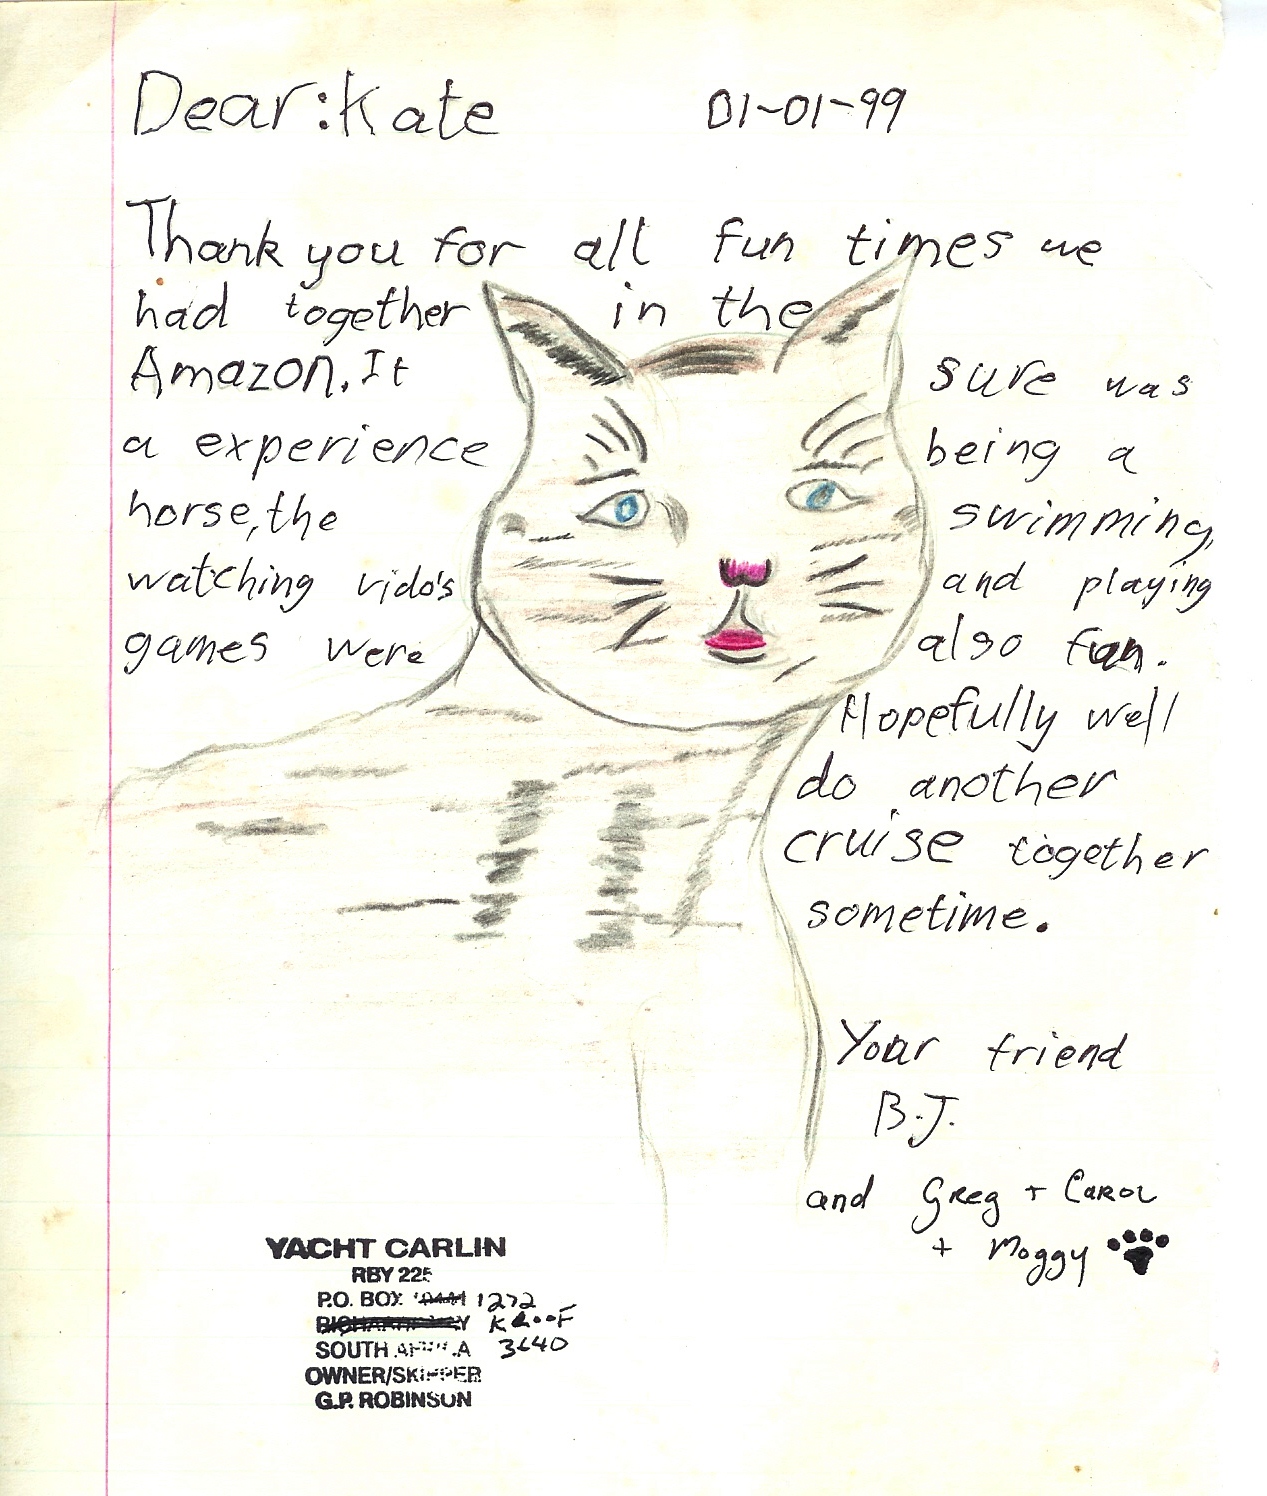 Dear:Kate 01-01-99
Thank you for all fun times we
had together in the
Amazon. It sure was
a experience being a
horse, the swimming,
watching vido's and playing
games were also fun.
Hopefully well
do another
cruise together
sometime.
Your friend
B.J.
and Greg + Carol
+ Moggy
YACHT CARLIN
RBY 225
P.O. BOX 1272
KLOOF
SOUTH AFRICA 3640
OWNER/SKIPPER
G.P. ROBINSON